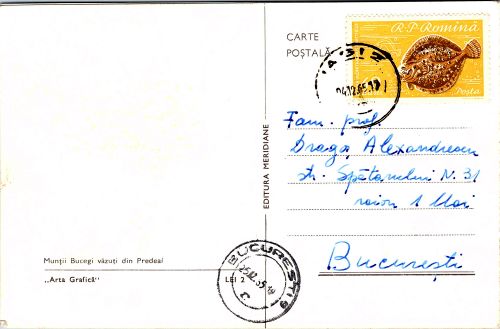 CARTE
POŞTALĂ
R.P. Romînă
Posta
04.12.65.19
Fam. prof.
Dragoş Alexandrescu
str. Spătarului N. 31
raion 1 Mai
Bucureşti
EDITURA MERIDIANE
Munţii Bucegi văzuţi din Predeal
„Arta Grafică"
LEI 2
BUCUREŞTI